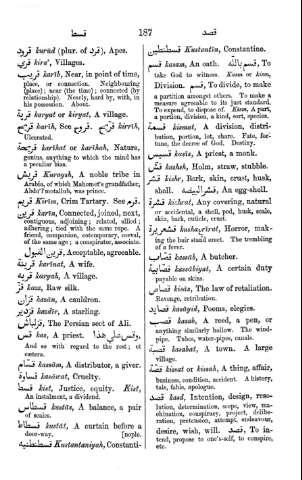 قسط
187
قصد
قرود kurūd (plur. of قرد), Apes.
قرى kira', Villages.
قريب karīb, Near, in point of time,
place, or connection. Neighbouring
(place); near (time); connected (by
relationship). Nearly, hard by, with, in
his possession. About.
قرية karyat or kiryat, A village.
قريح karīh, See قروح. قريح kirrīh,
Ulcerated.
قريحة karīhat or karīhah, Nature,
genius, anything to which the mind has
a peculiar bias.
قريش Kuraysh, A noble tribe in
Arabia, of which Mahomet's grandfather,
Abdu'l mutallib, was prince.
قريم Kirīm, Crim Tartary. See قرم.
قرين karīn, Connected, joined, next,
contiguous, adjoining; related, allied;
adhering; tied with the same rope. A
friend, companion, contemporary, coeval,
of the same age; a conspirator, associate.
قرين القبول, Acceptable, agreeable.
قرينة karīnat, A wife.
قريه karyah, A village.
قز kazz, Raw silk.
قزان kazān, A cauldron.
قزدير kazdīr, A starling.
قزلباش, The Persian sect of Ali.
قس kas, A priest. وقس على هذا,
And so with regard to the rest; et
cætera.
قسام kassām, A distributor, a giver.
قساوة kasāwat, Cruelty.
قسط kist, Justice, equity. Kist,
An instalment, a dividend.
قسطاس kustās, A balance, a pair
of scales.
قسطاط kustāt, A curtain before a
door-way. [nople.
قسطنطنية Kustantaniyah, Constanti-
قسطنطين Kustantin, Constantine.
قسم kasam, An oath. قسم بالله, To
take God to witness. Kism or kism,
Division. قسم, To divide, to make
a partition amongst others. To make a
measure agreeable to its just standard.
To expend, to dispose of. Kism, A part,
a portion, division, a kind, sort, species.
قسمة kismat, A division, distri-
bution, portion, lot, share. Fate, for-
tune, the decree of God. Destiny.
قسيس kasīs, A priest, a monk.
قش kashsh, Holm, straw, stubble.
قشر kishr, Bark, skin, crust, husk,
shell. قشر البيضة, An egg-shell.
قشرة kishrat, Any covering, natural
or accidental, a shell, pod, husk, scale,
skin, bark, cuticle, crust.
قشعريرة kusharīrat, Horror, mak-
ing the hair stand erect. The trembling
of a fever.
قصاب kassāb, A butcher.
قصابية kassābiyat, A certain duty
payable on skins.
قصاص kisās, The law of retaliation.
Revenge, retribution.
قصايد kasāyid, Poems, elegies.
قصب kasab, A reed, a pen, or
anything similarly hollow. The wind-
pipe. Tubes, water-pipes, canals.
قصبة kasabat, A town. A large
village.
قصة kissat or kissah, A thing, affair,
business, condition, accident. A history,
tale, fable, apologue.
قصد kasd, Intention, design, reso-
lution, determination, scope, view, ma-
chination, conspiracy, project, delibe-
ration, pretension, attempt, endeavour,
desire, wish, will. قصد, To in-
tend, propose to one's-self, to conspire,
etc.